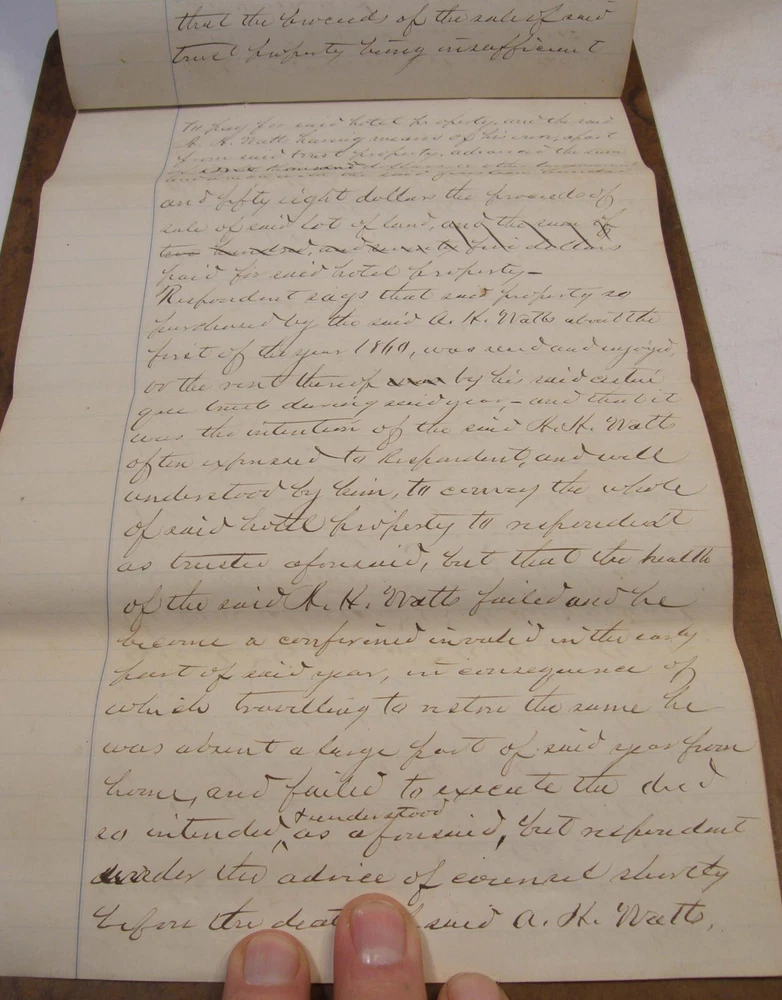 that the proceeds of the sale of said
trust property being insufficient
to pay for said hotel property, and the said
A. H. Watts having means of his own, apart
from said trust property, advanced the sum
and fifty eight dollars the proceeds of
sale of said lot of land, and the sum of
two hundred, and seventy five dollars
paid for said hotel property—
Respondent says that said property so
purchased by the said A. H. Watts about the
first of the year 1860, was used and enjoyed,
or the rent thereof by his said cestui
que trusts during said year, — and that it
was the intention of the said A. H. Watts
often expressed to Respondent, and well
understood by him, to convey the whole
of said hotel property to respondent
as trustee aforesaid, but that the health
of the said A. H. Watts failed and he
become a confirmed invalid in the early
part of said year, in consequence of
which travelling to restore the same he
was absent a large part of said year from
home, and failed to execute the deed
so intended, & understood as aforesaid, but respondent
under the advice of counsel shortly
before the said A. H. Watts,